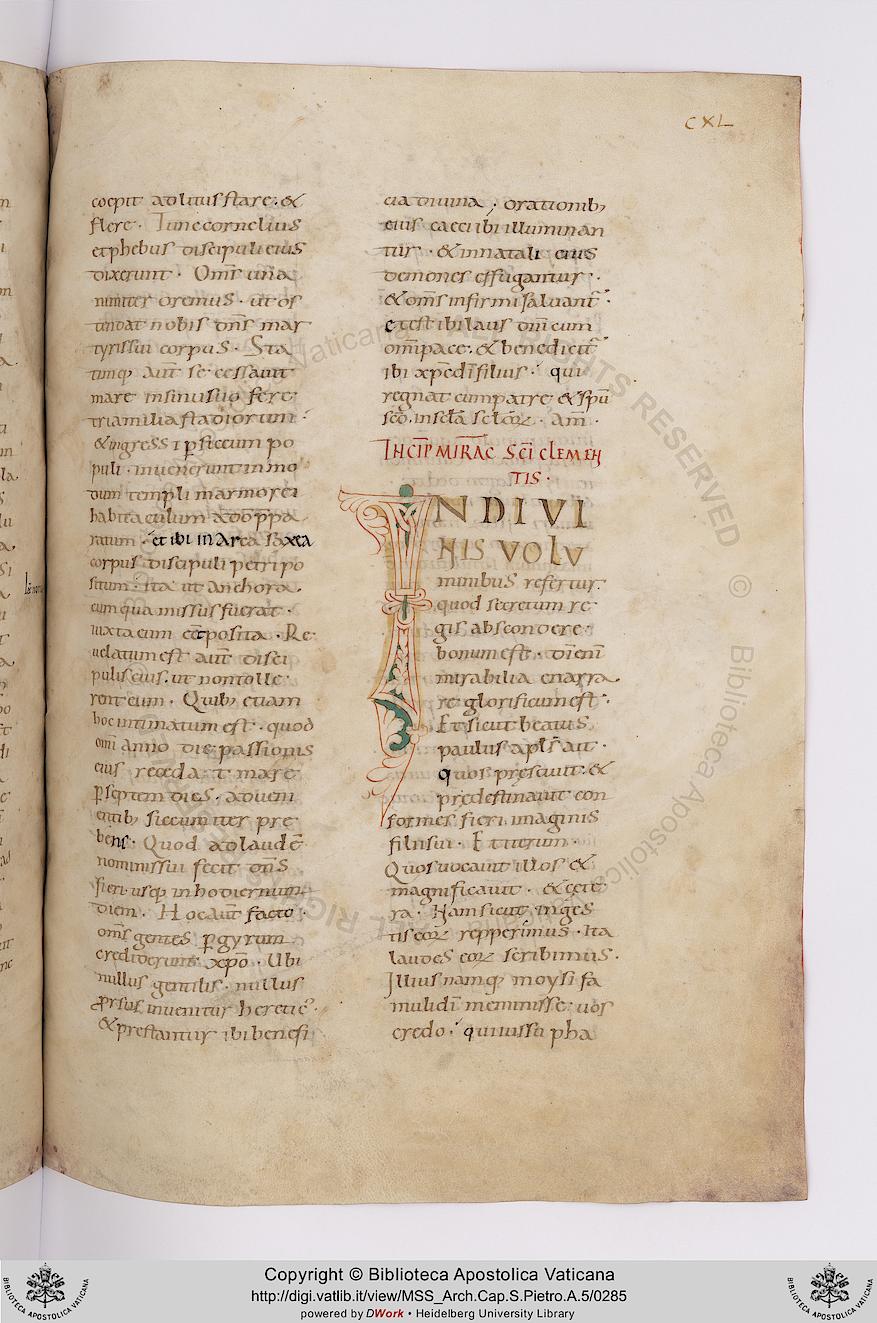 CXL
coepit ad litus stare · &
flere · Tunc cornelius
et phebus discipuli eius
dixerunt · Om̅s una
nimiter oremus · ut os
tendat nobis dn̅s mar
tyris sui corpus · Sta
timq; aut̅ se cessauit
mare in sinu suo fere
tria milia stadiorum ·
& ingressi p̱ siccum po
puli · inuenerunt in mo
dum templi marmorei
habitaculum adopp̱a
ratum · et ibi in arca saxea
corpus discipuli petri po
situm · ita ut anchora
cum qua missus fuerat ·
iuxta eum et̅ posita · Re
uelatum est aut̅ disci
pulis eius · ut non tolle
rent eum · Quib; etiam
hoc intimatum est · quod
omi̅ anno die passionis
eius recedat mare
p̱ septem dies · adueni
entib; siccum iter pre
bens · Quod ad laude̅
nominis sui fecit dn̅s
fieri usq; in hodiernum
diem · Hoc aut̅ facto ·
om̅s gentes p̱ gyrum
crediderunt xp̅o · Ubi
nullus gentilis · nullus
p̱rsus inuenitur heretic̅ ·
& prestantur ibi benefi
cia diuina ; orationib;
eius caeci ibi illuminan
tur · & in natali eius
demones effugantur ·
& om̅s infirmi saluant̅ ·
et est ibi laus dni̅ cum
omi̅ pace · & benedicit̅
ibi xp̅s di̅ filius · qui
regnat cum patre & spu̅
sc̅o · in sc̅la sc̅loꝝ · am̅ ·
INCIP̅ MIRAC̅ SC̅I CLEMEN
TIS ·
INDIVI
NIS VOLV
minibus refertur
quod secretum re
gis abscondere
bonum est · di̅ eni̅
mirabilia enarra
re glorificum est ·
Et sicut beatus
paulus apl̅s ait ·
quos presciuit · &
predestinauit con
formes fieri imaginis
filii sui · Et iterum ·
Quos uocauit illos &
magnificauit · & cete
ra · Nam sicut in ges
tis eoꝝ repperimus · Ita
laudes eoꝝ scribimus ·
Illius namq; moysi fa
muli di̅ meminisse uos
credo · qui iussu pha
Copyright © Biblioteca Apostolica Vaticana
http://digi.vatlib.it/view/MSS_Arch.Cap.S.Pietro.A.5/0285
powered by DWork • Heidelberg University Library
BIBLIOTECA APOSTOLICA VATICANA
BIBLIOTECA APOSTOLICA VATICANA